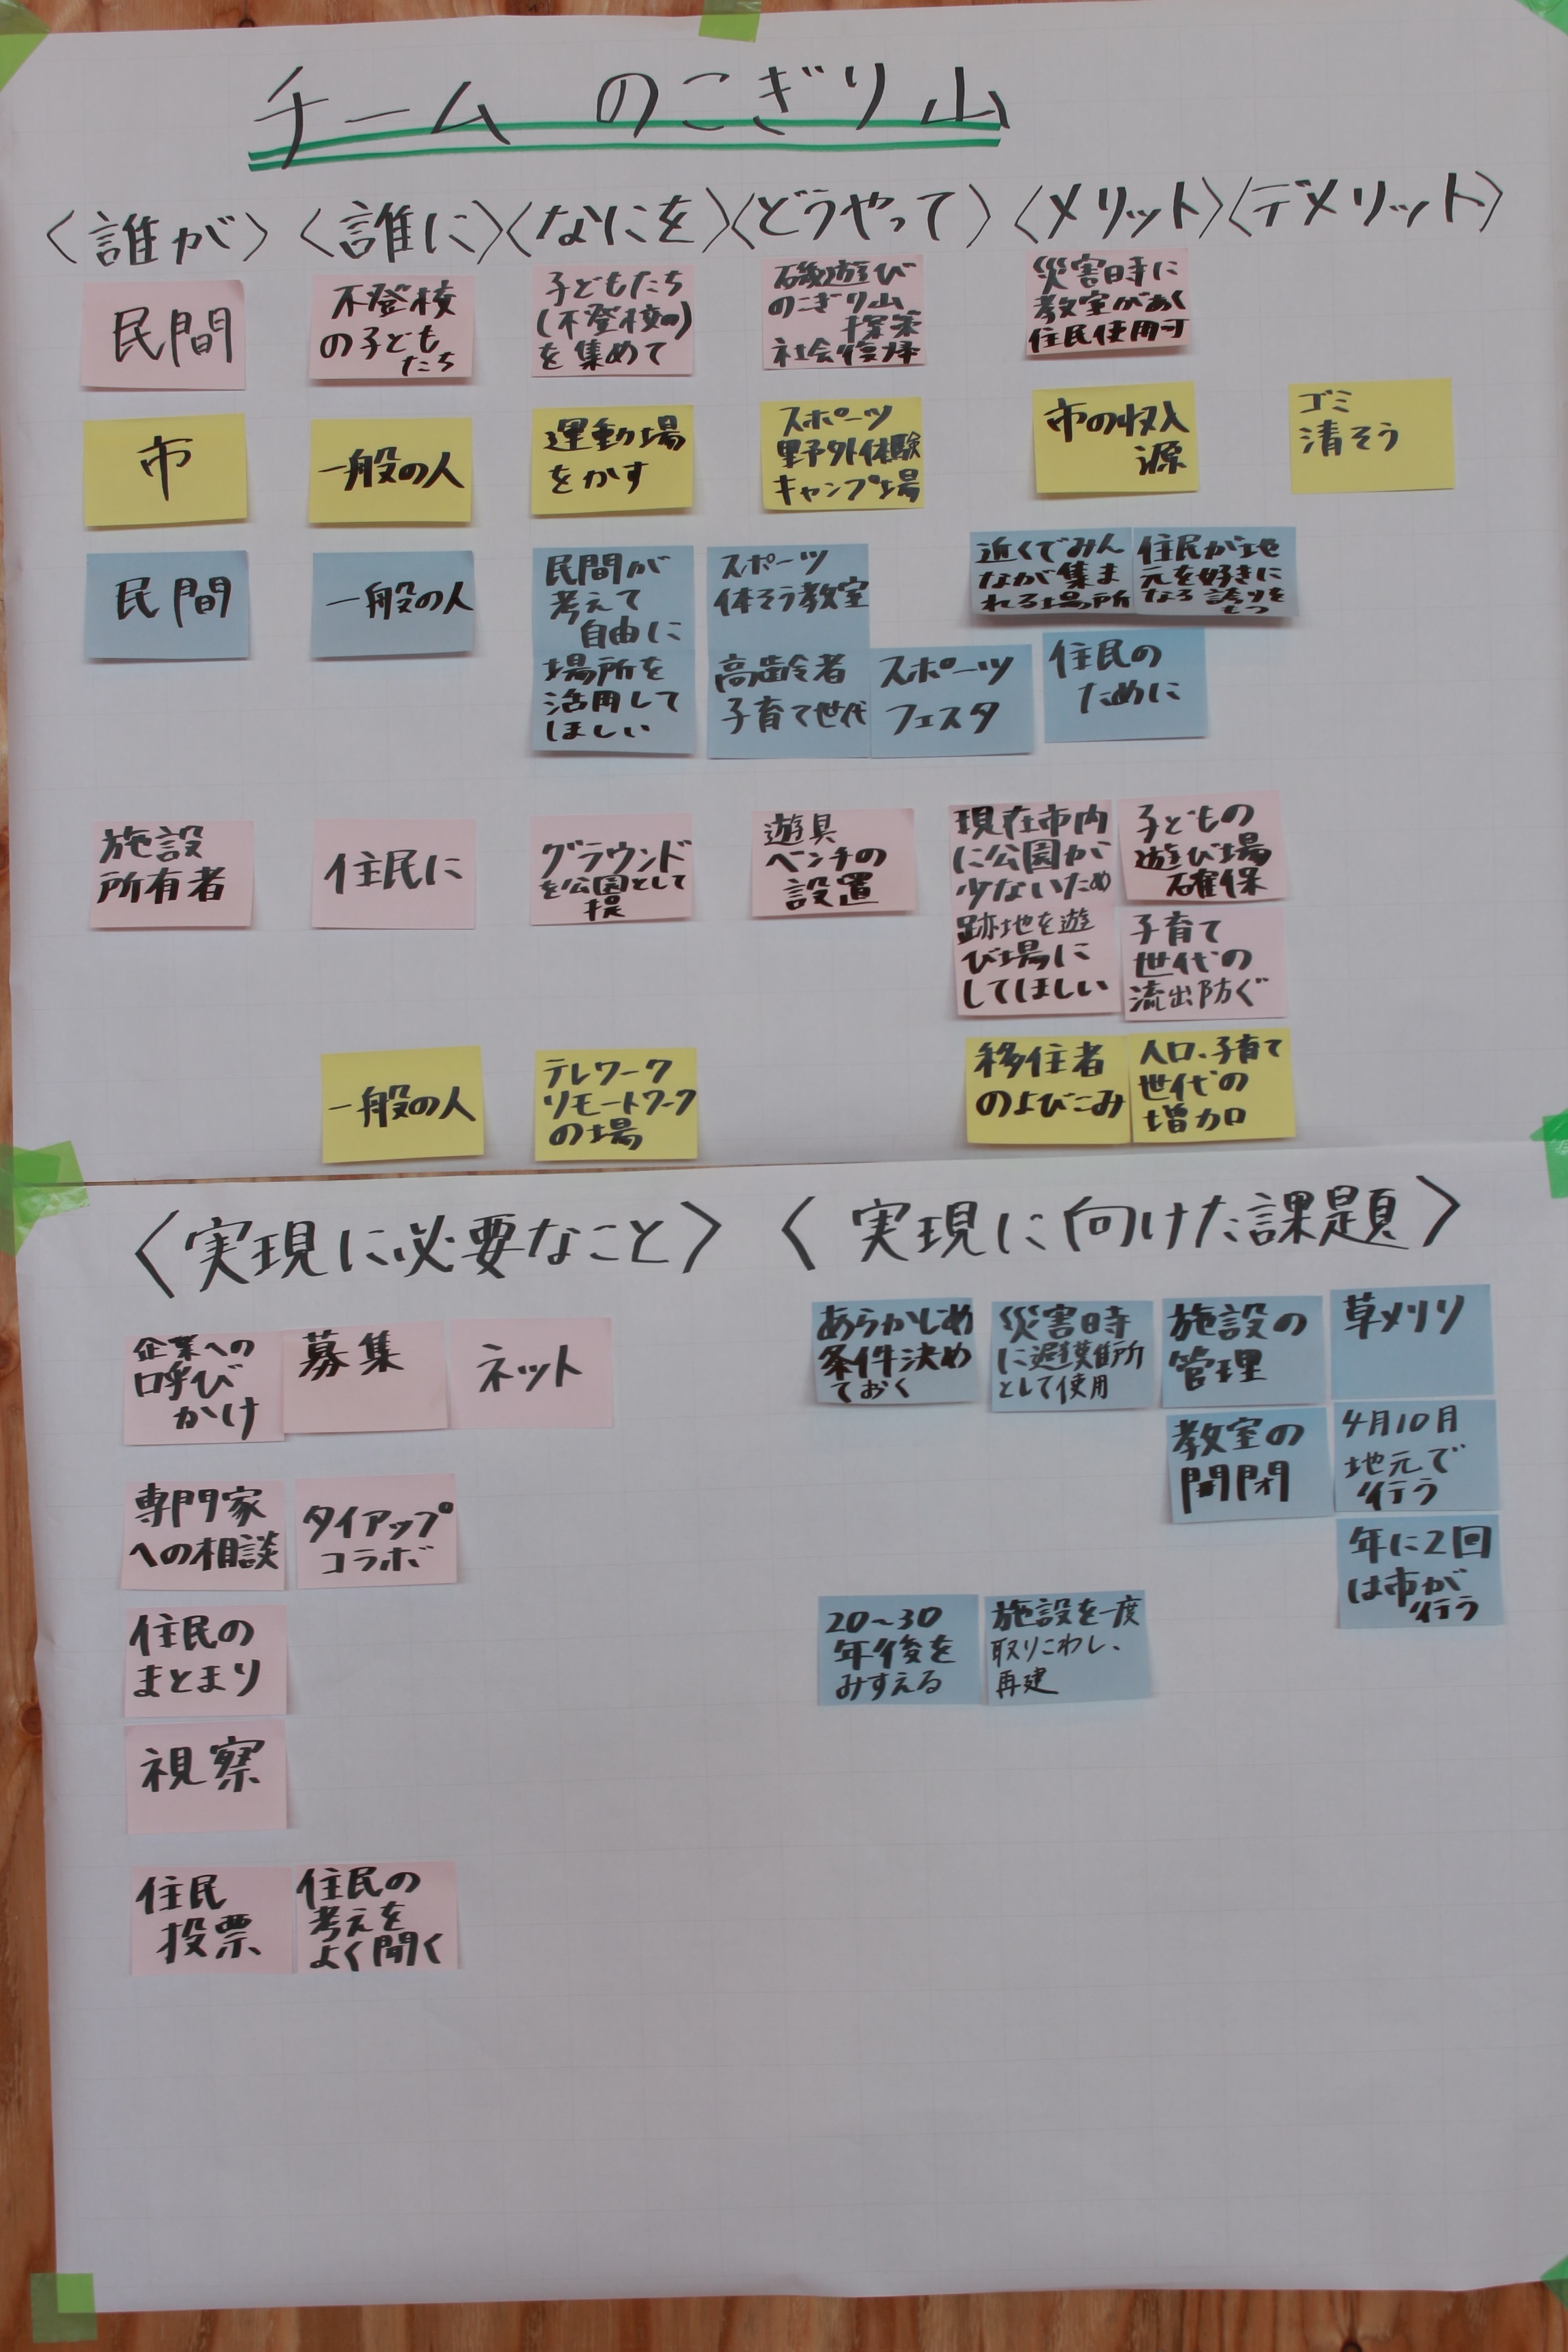 チーム のこぎり山
〈誰が〉〈誰に〉〈なにを〉〈どうやって〉〈メリット〉〈デメリット〉
民間
不登校
の子ども
たち
子どもたち
(不登校の)
を集めて
磯遊び
のこぎり山
探索
社会復帰
災害時に
教室があく
住民使用可
市
一般の人
運動場
をかす
スポーツ
野外体験
キャンプ場
市の収入
源
ゴミ
清そう
民間
一般の人
民間が
考えて
自由に
場所を
活用して
ほしい
スポーツ
体そう教室
高齢者
子育て世代
スポーツ
フェスタ
近くでみん
なが集ま
れる場所
住民が地
元を好きに
なる 誇りを
もつ
住民の
ために
施設
所有者
住民に
グラウンド
を公園として
遊具
ベンチの
設置
現在市内
に公園が
少ないため
跡地を遊
び場に
してほしい
子どもの
遊び場
確保
子育て
世代の
流出防ぐ
一般の人
テレワーク
リモートワーク
の場
移住者
のよびこみ
人口、子育て
世代の
増加
〈実現に必要なこと〉
企業への
呼び
かけ
募集
ネット
専門家
への相談
タイアップ
コラボ
住民の
まとまり
視察
住民
投票
住民の
考えを
よく聞く
〈実現に向けた課題〉
あらかじめ
条件決め
ておく
災害時
に避難所
として使用
施設の
管理
教室の
開閉
草刈り
4月10月
地元で
行う
年に2回
は市が
行う
20~30
年後を
みすえる
施設を一度
取りこわし、
再建